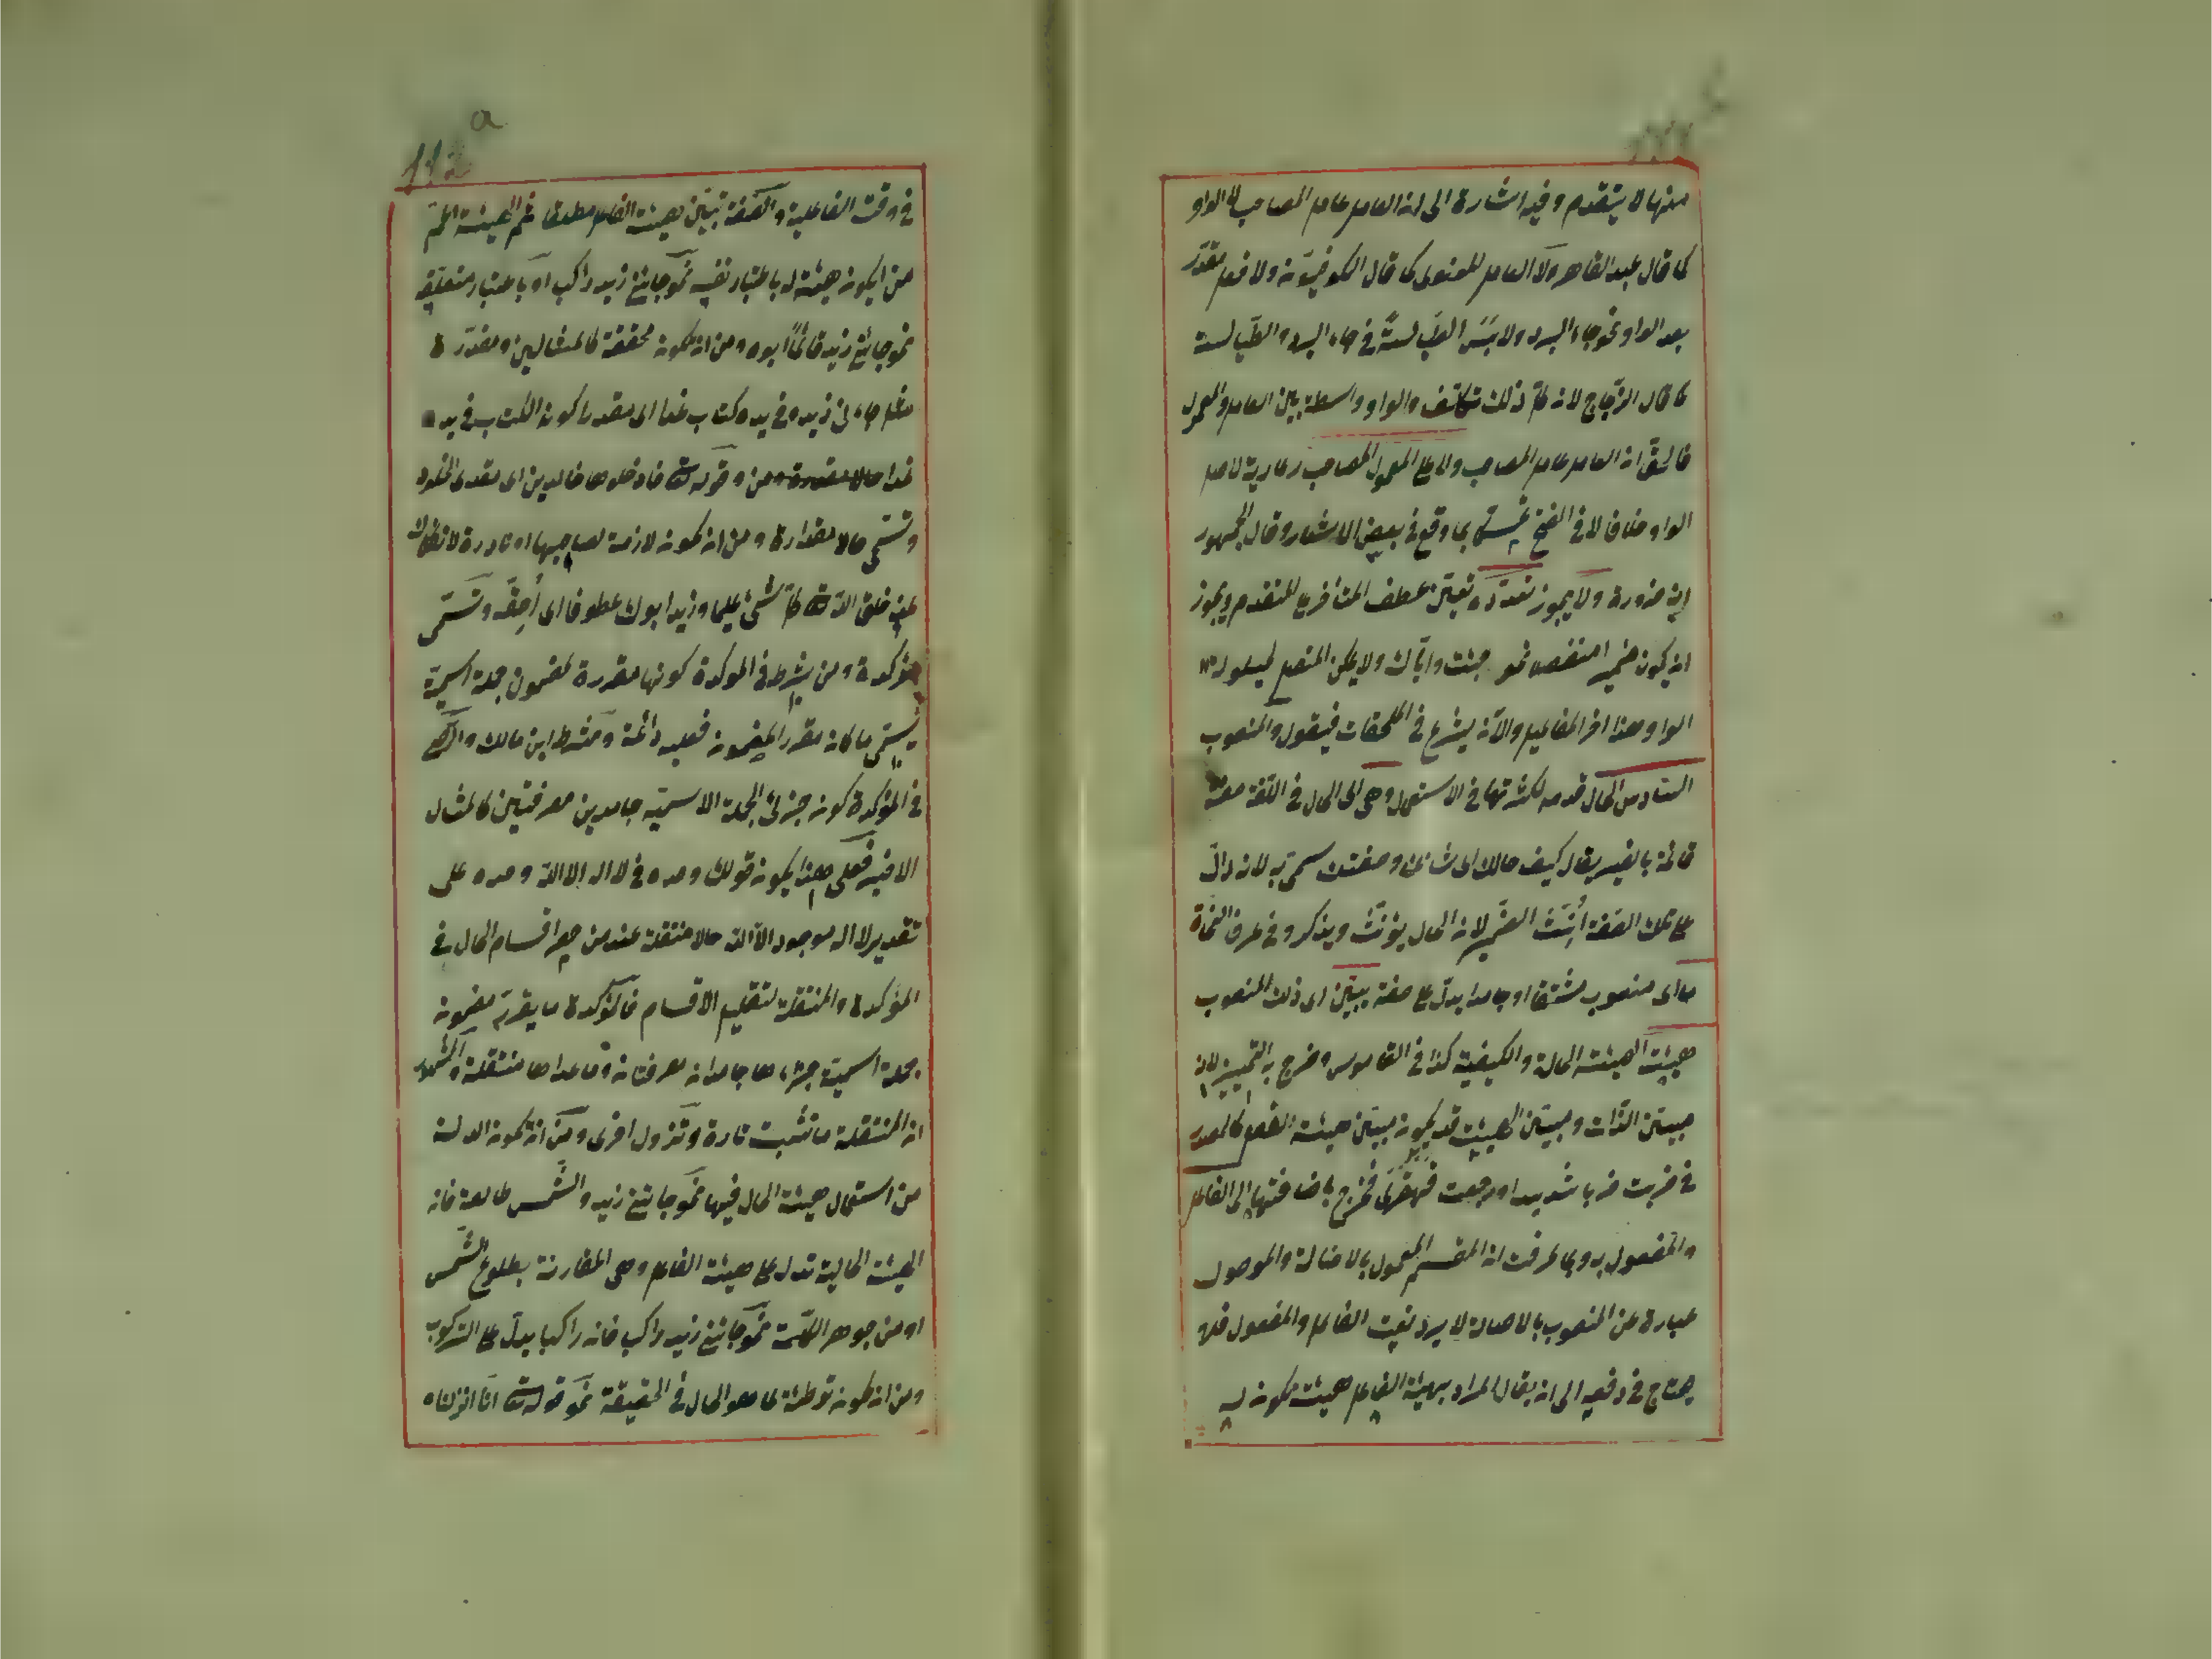 منها لا يتقدم وفيه اشارة الى ان العامل عامل المصاحب لا الواو
كما قال عبد القاهر ولا العامل المعنوى كما قال الكوفيّون ولا فعل مقدّر
بعد الواو نحو جاء البرد ولابَسَ الطيالسةَ فى جاء البرد والطّيالسة
كما قال الزّجاج لان كلّ ذلك تكلّف والواو واسطة بين العامل والمعمول
ان العامل عامل المصاحب ولا على المعمول المصاحب رعاية لاصل
الواو خلافا لا فى الفتح بما وقع فى بعض الاشعار وقال الجمهور
انه ضرورة ولا يجوز تعدّده عطف المتأخر على المتقدم ويجوز
ان يكون ضميرا منفصلا نحو جئت واياك ولا يمكن المتصل
الواو وهذا اخر المفاعيل والآن يشرع فى الملحقات فيقول والمنصوب
السّادس الحال قدمه لكثرتها فى الاستعمال وهى اى الحال فى اللغة صفة
قائمة بالغير يقال كيف حالك اى شانك وصفتك سمى به لانه دالّ
على تلك الصّفة أنّث الضّمير لان الحال يؤنّث ويذكر وفى عرف النّحاة
ما اى منصوب مشتقا او جامدا يدلّ على صفة يبيّن اى ذلك المنصوب
هيئة الهيئة الحالة والكيفية كذا فى القاموس وخرج به التمييز لانه
مبيّن الذّات ومبيّن الهيئة قد يكون مبيّن هيئة الفعل كالمصدر
فى ضربت ضربا شديدا ورجعت قهقرى فخرج باضافتها الى الفاعل
والمفعول به وبما عرفت ان المقسم المعمول بالاصالة والموصول
عبارة عن المنصوب بالاصالة لا يرد نعت الفاعل والمفعول فلا
يحتاج فى دفعه الى ان يقال المراد بهيئة الفاعل هيئة يكون له
فى وقت الفاعلية والصّفة تبيّن هيئة الفاعل مطلقا ثم الهيئة اعمّ
من ان يكون هيئة له باعتبار نفسه نحو جائنى زيد راكبا او باعتبار متعلّقه
نحو جائنى زيد قائماً ابوه ومن ان يكون محققة كالمثالين ومقدّرة
مثل جاءنى زيد وفى يده كتاب غدا اى مقدرا كون الكتاب فى يده
غدا حالا مقدرة ومن قوله تعالى فادخلوها خالدين اى مقدرى الخلود
وتسمّى حالا مقدارة ومن ان تكون لازمة لصاحبها او نادرة الانفكاك
عنه خلق الله تعالى كلّ شئ عليما وزيد ابوك عطوفا اى أحقّه وتسمّى
مؤكدة ومن يشرط فى الموكدة كونها مقررة لمضمون جملة اسمية
يسمّى ما كان مقررا لمضمون فعلية دائمة وشرط ابن مالك
فى المؤكدة كون جزئى الجملة الاسميّة جامدين معرفتين كالمثال
الاخير فعلى هذا يكون قولك وحده فى لا اله الا الله وحده على
تقدير لا اله موجود الا الله حالا منتقلة عند من حصر اقسام الحال فى
المؤكدة والمنتقلة لتقليل الاقسام فالمؤكدة ما يقرر مضمون
جملة اسمية جزءاها جامدان معرفتان وما عداها منتقلة والمشهور
ان المنتقلة ما تثبت تارة وتزول اخرى ومن ان يكون الدلالة
من استعمال هيئة الحال فيها نحو جائنى زيد والشّمس طالعة فان
الهيئة الحالية تدل على هيئة الفاعل وهى المقارنة بطلوع الشّمس
او من جوهر الكلمة نحو جائنى زيد راكبا فان راكبا يدلّ على الركوب
ومن ان يكون توطئة لما هو الحال فى الحقيقة نحو قوله تعالى انا انزلناه